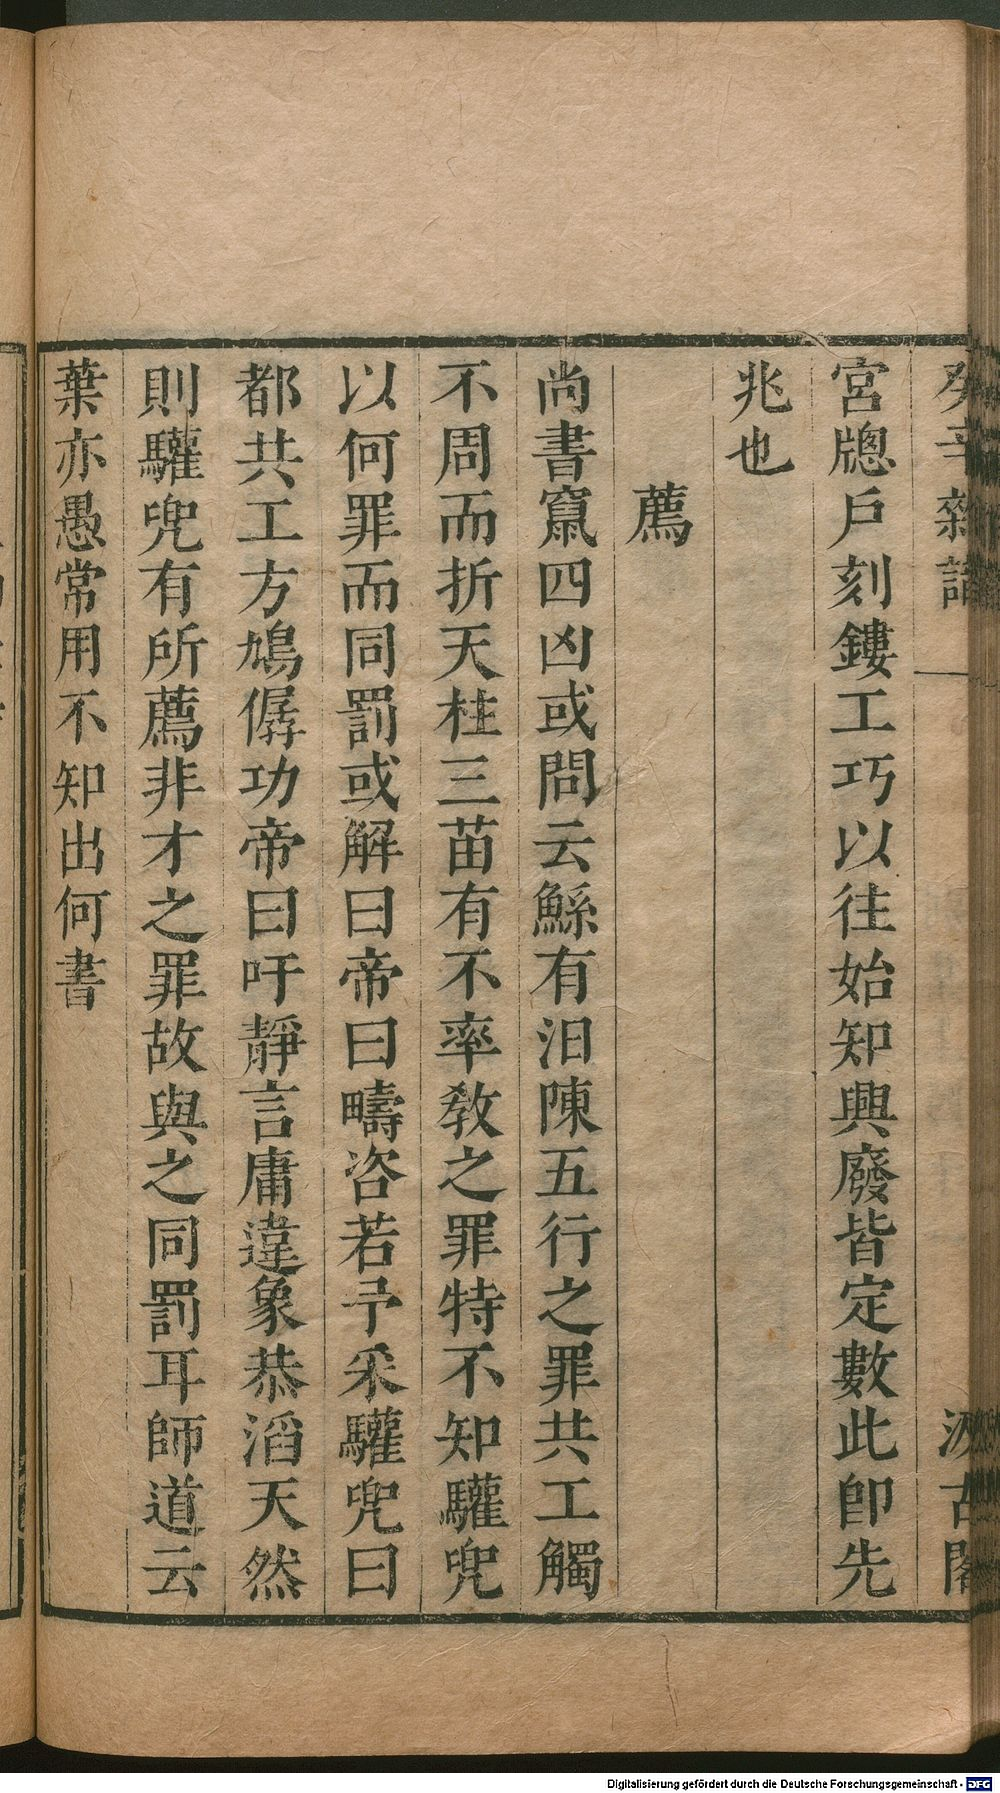 癸辛雜識
汲古閣
宮牕戶刻鏤工巧以往始知興廢皆定數此卽先
兆也
薦
尚書竄四凶或問云鯀有汨陳五行之罪共工觸
不周而折天柱三苗有不率敎之罪特不知驩兜
以何罪而同罰或解曰帝曰疇咨若予采驩兜曰
都共工方鳩僝功帝曰吁靜言庸違象恭滔天然
則驩兜有所薦非才之罪故與之同罰耳師道云
葉亦愚常用不知出何書
Digitalisierung gefördert durch die Deutsche Forschungsgemeinschaft - DFG